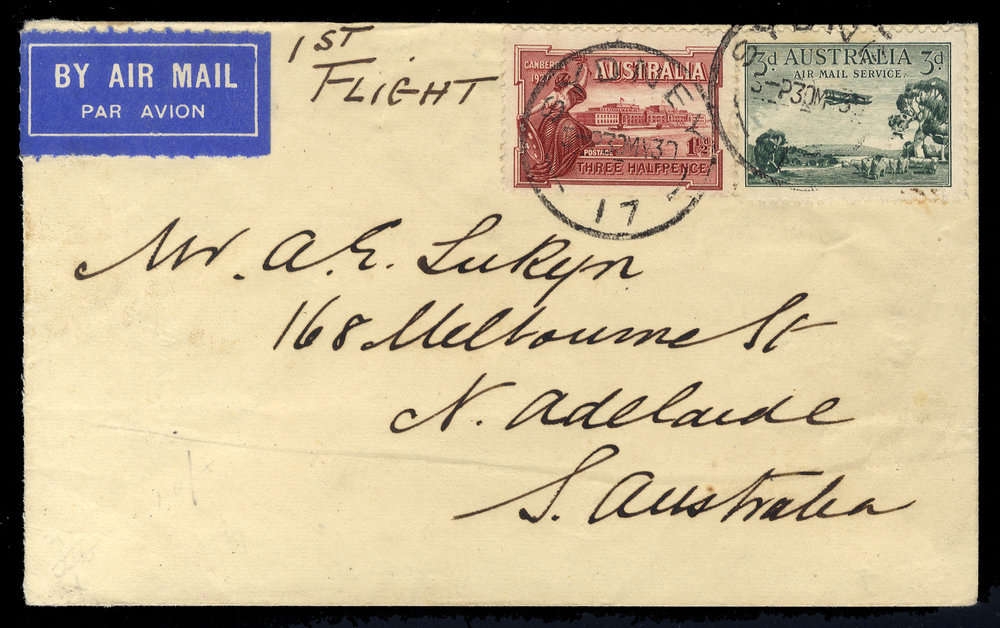 BY AIR MAIL
PAR AVION
1ST
FLIGHT
CANBERRA
1927
AUSTRALIA
POSTAGE
1½D
THREE HALFPENCE
SYDNEY
17
SYDNEY
3d AUSTRALIA 3d
AIR MAIL SERVICE
Mr. A. E. Lukyn
168 Melbourne St
N. Adelaide
S. Australia